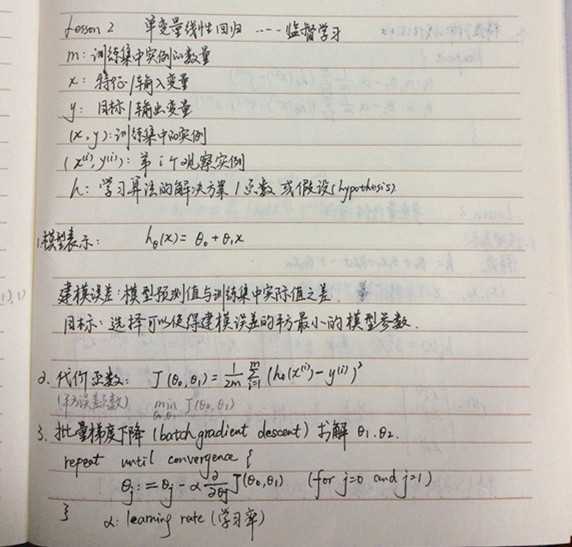 Lesson 2 单变量线性回归 ---- 监督学习
m: 训练集中实例的数量
x: 特征/输入变量
y: 目标/输出变量
(x, y): 训练集中的实例
(x⁽ⁱ⁾, y⁽ⁱ⁾): 第 i 个观察实例
h: 学习算法的解决方案/函数 或假设(hypothesis)
1.模型表示: hθ(x) = θ₀ + θ₁x
建模误差: 模型预测值与训练集中实际值之差.
目标: 选择可以使得建模误差的平方最小的模型参数.
2. 代价函数: J(θ₀, θ₁) = 1/2m Σᵢ₌₁ᵐ (hθ(x⁽ⁱ⁾) - y⁽ⁱ⁾)²
(平方误差函数) min θ₀,θ₁ J(θ₀, θ₁)
3. 批量梯度下降 (batch gradient descent) 求解 θ₁. θ₂.
repeat until convergence {
θj := θj - α ∂/∂θj J(θ₀, θ₁) (for j=0 and j=1)
}
α: learning rate (学习率)